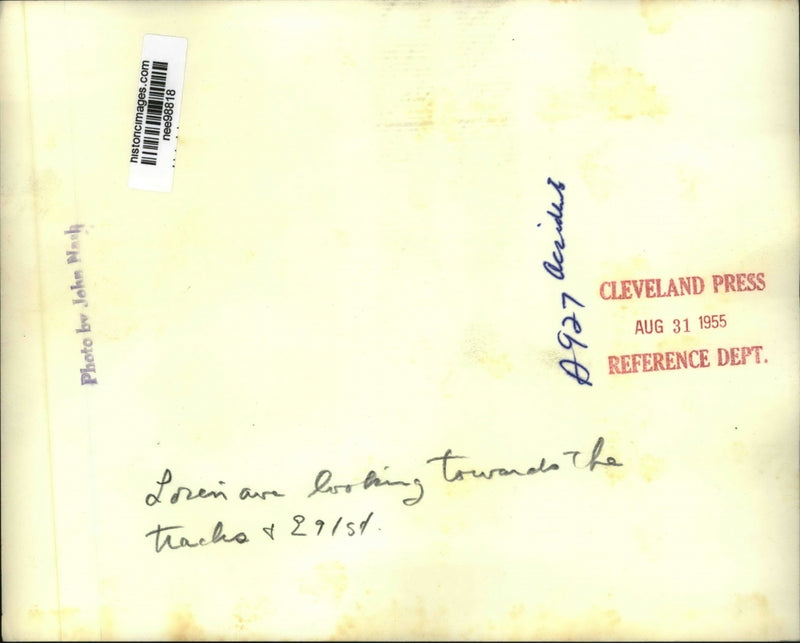 historicimages.com
nee98818
Photo by John Nash
A927 Accident
CLEVELAND PRESS
AUG 31 1955
REFERENCE DEPT.
Loren ave looking towards the
tracks & E91st.